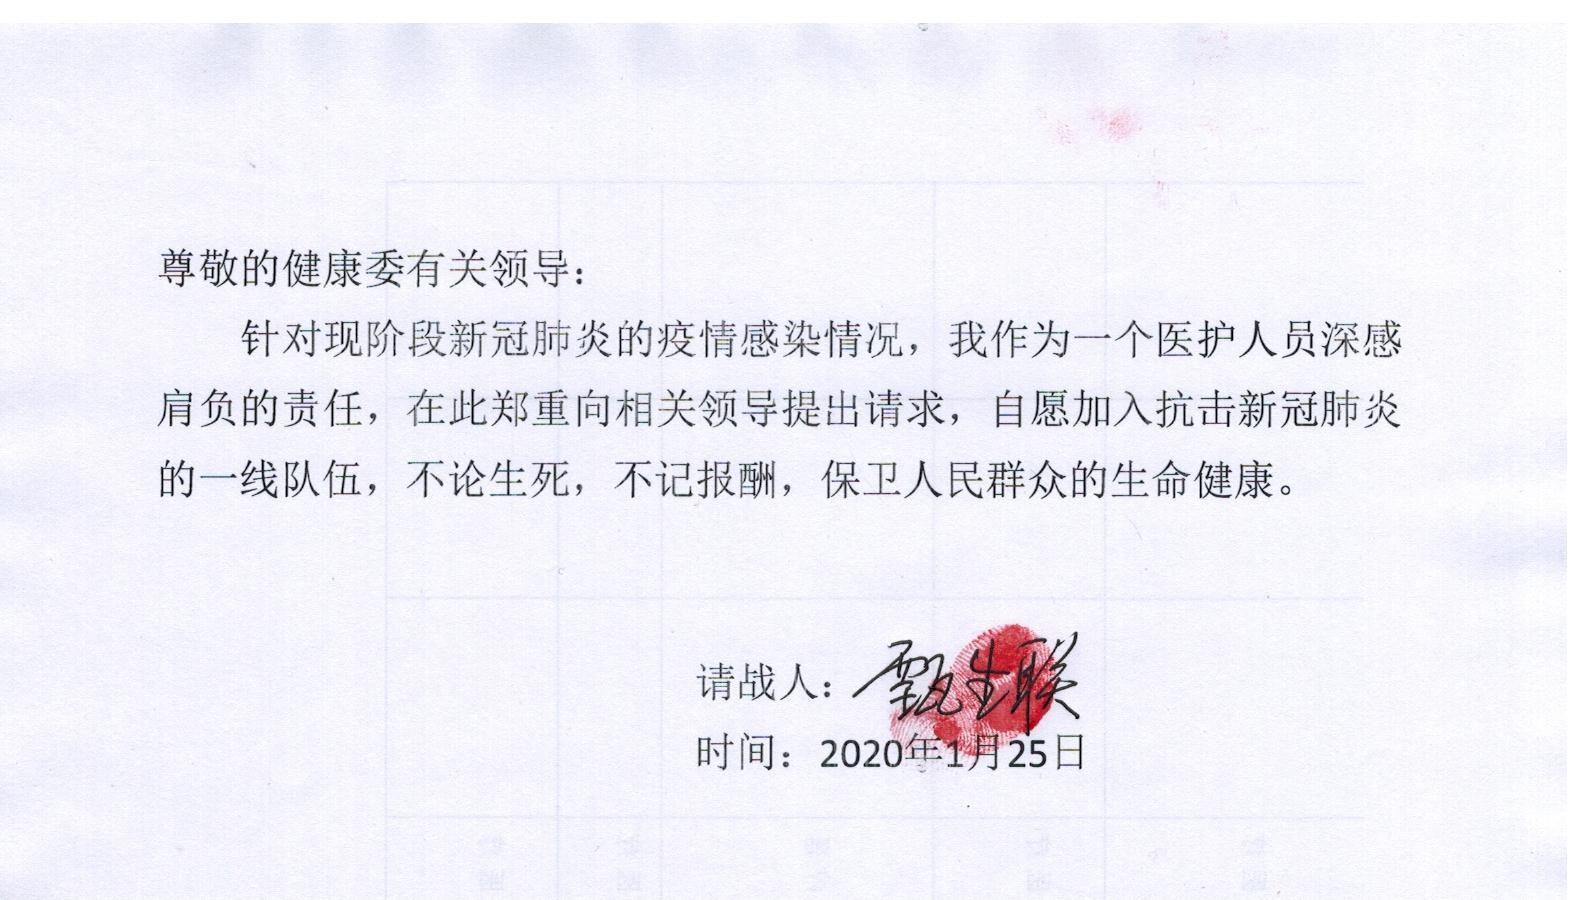 尊敬的健康委有关领导：
针对现阶段新冠肺炎的疫情感染情况，我作为一个医护人员深感
肩负的责任，在此郑重向相关领导提出请求，自愿加入抗击新冠肺炎
的一线队伍，不论生死，不记报酬，保卫人民群众的生命健康。
请战人：甄生联
时间：2020年1月25日